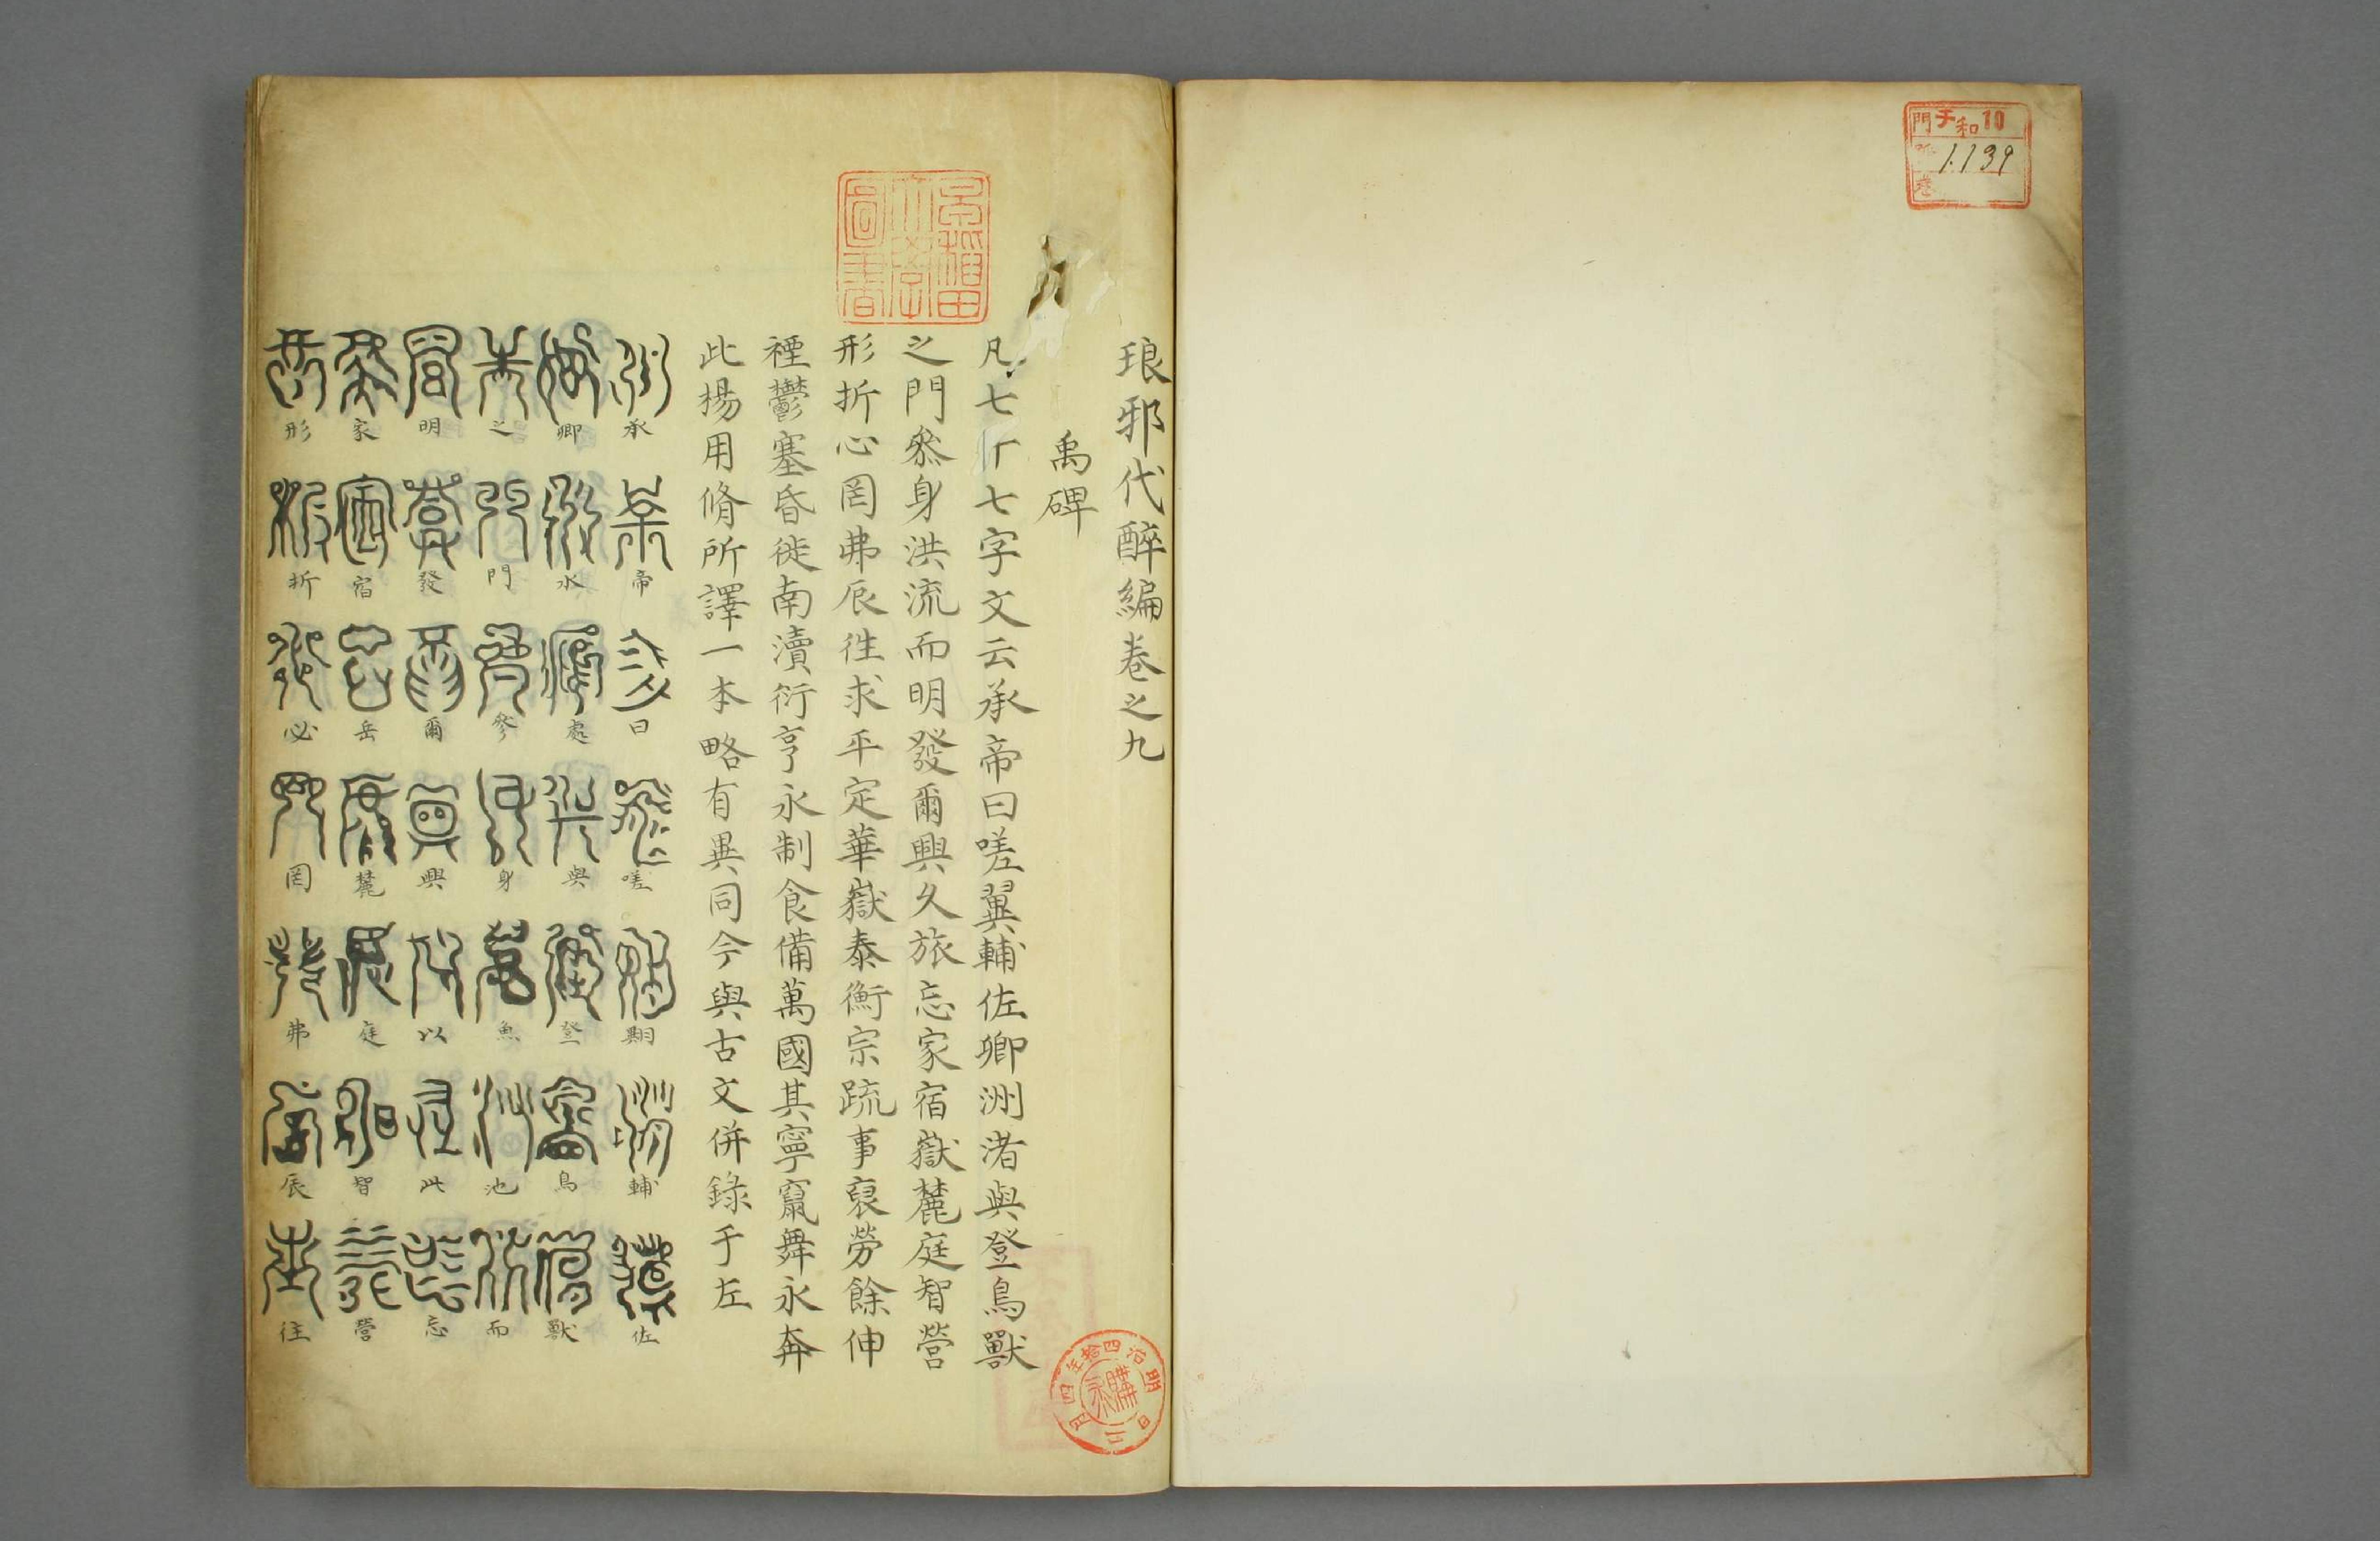 門 チ 和 10
號 1.139
卷
早稲田大學圖書
琅邪代醉編卷之九
禹碑
凡七十七字文云承帝曰嗟翼輔佐卿洲渚與登鳥獸
之門叅身洪流而明發爾興久旅忘家宿嶽麓庭智營
形折心罔弗辰徃求平定華嶽泰衡宗疏事裒勞餘伸
禋鬱塞昏徙南瀆衍亨永制食備萬國其寧竄舞永奔
此楊用脩所譯一本略有異同今與古文併錄于左
承帝曰嗟翢輔佐
卿水處與登鳥獸
之門參身魚池而
明發爾興以此忘
家宿岳麓庭智營
形折必罔弗辰往
明治四拾四年 月 二 日
購求